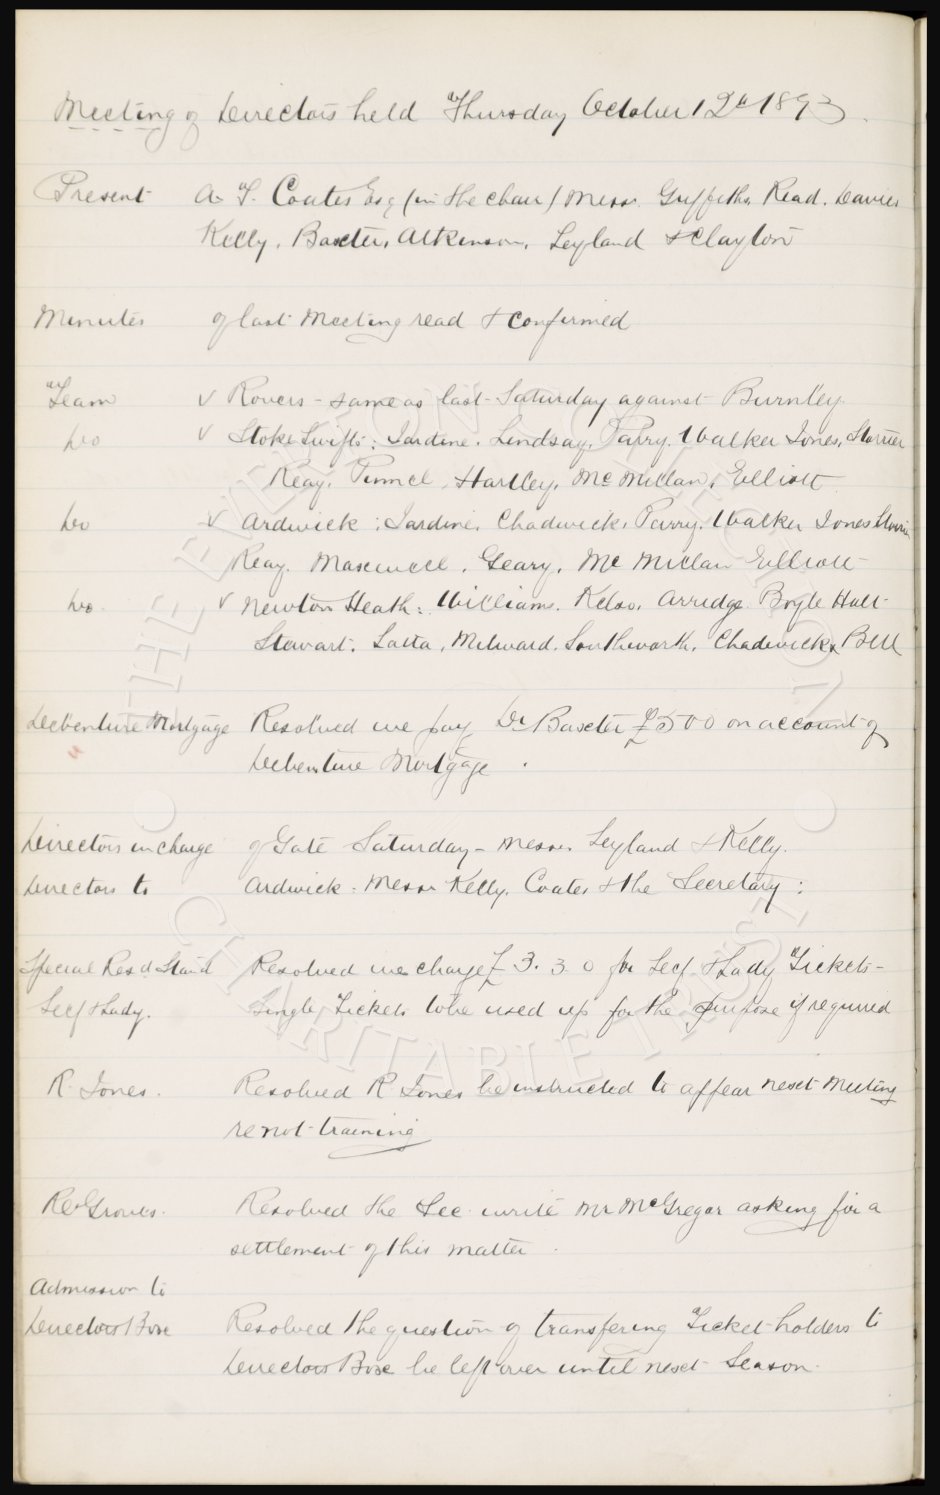 Meeting of Directors held Thursday October 12th 1893
Present A. T. Coates Esq (in the chair) Messrs. Griffiths Read. Davies
Kelly, Baxter, Atkinson, Leyland & Clayton
Minutes of last Meeting read & confirmed
Team v Rovers - same as last Saturday against Burnley.
Do v Stoke Swifts: Jardine. Lindsay, Parry. Walker Jones, Storrier
Reay. Pinnell, Hartley, McMillan, Elliott
Do v Ardwick: Jardine. Chadwick, Parry. Walker Jones Storrier
Reay. Maxwell. Geary. McMillan Elliott
Do. v Newton Heath: Williams. Kelso, Arridge. Boyle Holt
Stewart. Latta, Milward. Southworth. Chadwick & Bell
Debenture Mortgage Resolved we pay Dr Baxter £500 on account of
Debenture Mortgage.
Directors in charge of Gate Saturday - Messrs. Leyland & Kelly.
Directors to Ardwick: Messrs Kelly, Coates & the Secretary:
Special Resd Stand Resolved we charge £3. 3. 0 for Self & Lady Tickets-
Self & Lady. Single Tickets to be used up for the purpose if required
R. Jones. Resolved R Jones be instructed to appear next Meeting
re not training
Re Groves. Resolved the Sec write Mr McGregor asking for a
settlement of this matter.
Admission to
Directors Box Resolved the question of transfering Ticket-holders to
Directors Box be left over until next Season.
THE EVERTON
CHARITABLE TRUST